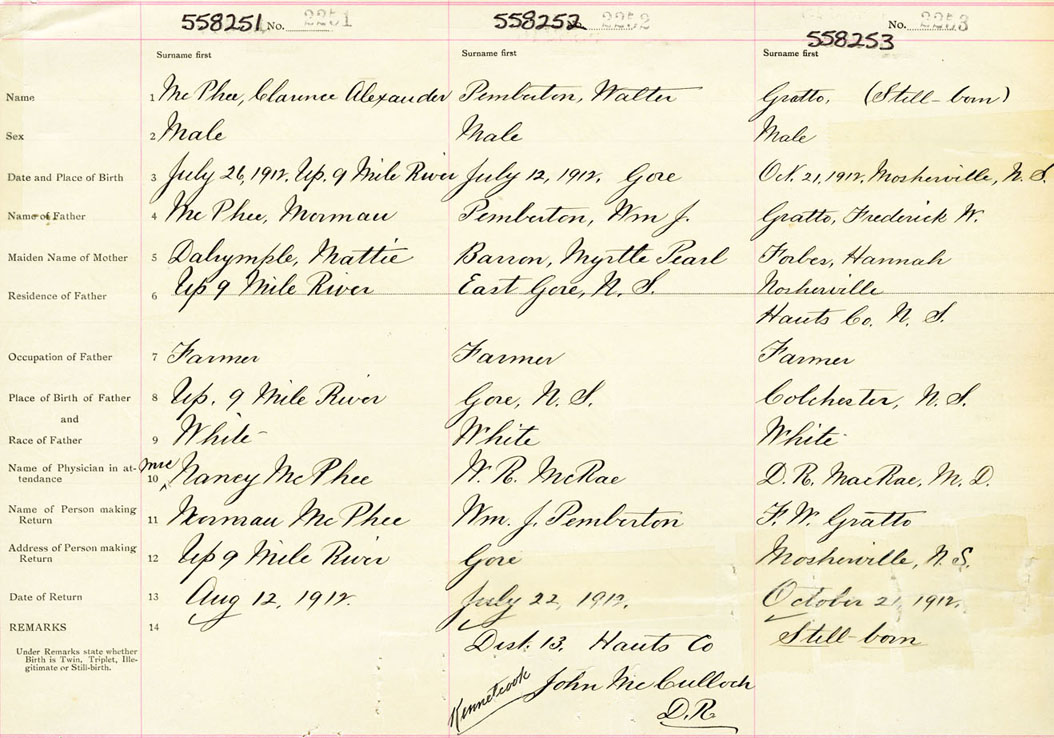 558251 No. 2251 558252 2252 No. 2253
558253
Surname first Surname first Surname first
Name 1 McPhee, Clarence Alexander Pemberton, Walter Gratto, (Still-born)
Sex 2 Male Male Male
Date and Place of Birth 3 July 26, 1912. Up. 9 Mile River July 12, 1912, Gore Oct. 21, 1912, Mosherville, N. S.
Name of Father 4 McPhee, Norman Pemberton, Wm J. Gratto, Frederick W.
Maiden Name of Mother 5 Dalrymple, Mattie Barron, Myrtle Pearl Forbes, Hannah
Residence of Father 6 Up 9 Mile River East Gore, N. S. Mosherville
Hants Co. N. S.
Occupation of Father 7 Farmer Farmer Farmer
Place of Birth of Father 8 Up. 9 Mile River Gore, N. S. Colchester, N. S.
and
Race of Father 9 White White White
Name of Physician in at-
tendance 10 Mrs Nancy McPhee W. R. McRae D. R. MacRae, M. D.
Name of Person making
Return 11 Norman McPhee Wm. J. Pemberton F. W. Gratto
Address of Person making
Return 12 Up 9 Mile River Gore Mosherville, N. S.
Date of Return 13 Aug 12, 1912. July 22, 1912. October 21, 1912.
REMARKS 14 Still-born
Under Remarks state whether
Birth is Twin, Triplet, Ille-
gitimate or Still-birth.
Dist. 13, Hants Co
Kennetcook John McCulloch
D.R